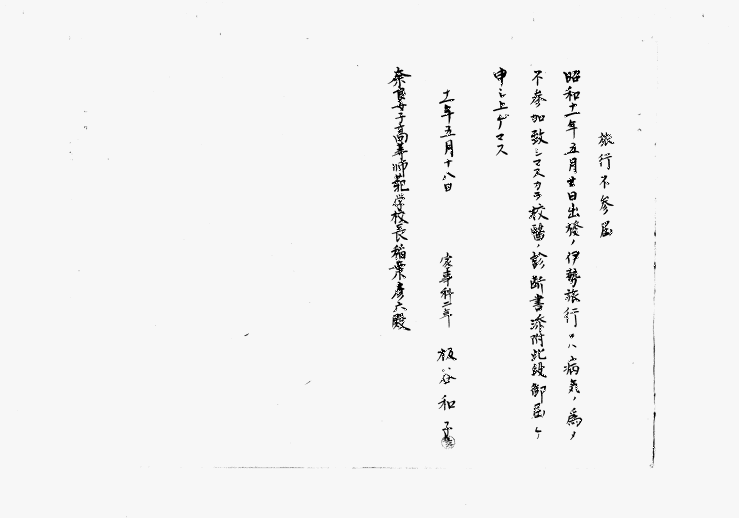 旅行不参届
昭和十一年五月廿日出發ノ伊勢旅行ニハ病気ノ為メ
不参加致シマスカラ校醫ノ診断書添附此段御届ケ
申シ上ゲマス
十一年五月十八日
家事科二年 板谷和子
奈良女子高等師範学校長稲葉彦六殿